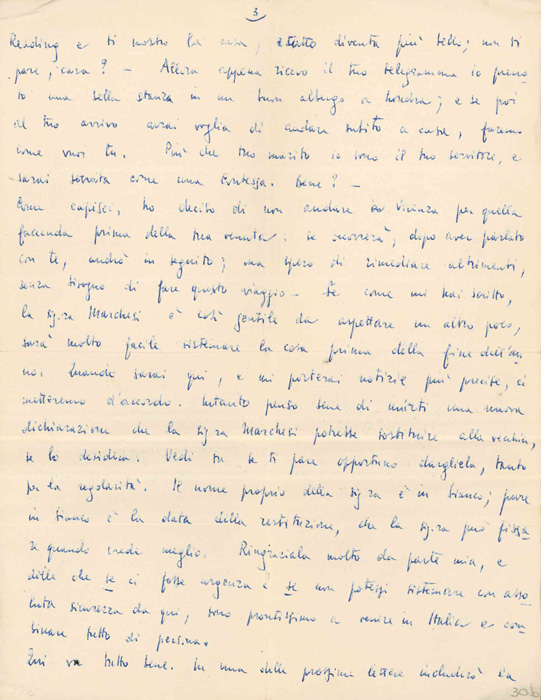 3
Reading e ti mostro la casa, e tutto diventa più bello; non ti
pare, cara? — Allora appena ricevo il tuo telegramma io preno
to una bella stanza in un buon albergo a Londra; e se poi
al tuo arrivo avrai voglia di andare subito a casa, faremo
come vuoi tu. Più che tuo marito io sono il tuo servitore, e
sarai servita come una Contessa. Bene? —
Come capisci, ho deciso di non andare a Vicenza per quella
faccenda prima della tua venuta: se occorrerà, dopo aver parlato
con te, andrò in seguito; ma spero di rimediare altrimenti,
senza bisogno di fare questo viaggio — Se come mi hai scritto,
la sig.ra Marchesi è così gentile da aspettare un altro poco,
sarà molto facile sistemare la cosa prima della fine dell'an
no. Quando sarai qui, e mi porterai notizie più precise, ci
metteremo d'accordo. Intanto penso bene di unirti una nuova
dichiarazione che la sig.ra Marchesi potrebbe sostituire alla vecchia,
se lo desidera. Vedi tu se ti pare opportuno dargliela, tanto
per la regolarità. Il nome proprio della sig.ra è in bianco; pure
in bianco è la data della restituzione, che la sig.ra può fissa
re quando crede meglio. Ringraziala molto da parte mia, e
dille che se ci fosse urgenza e se non potessi sistemare con asso
luta sicurezza da qui, sono prontissimo a venire in Italia e com
binare tutto di persona.
Qui va tutto bene. In una delle prossime lettere includerò
30b